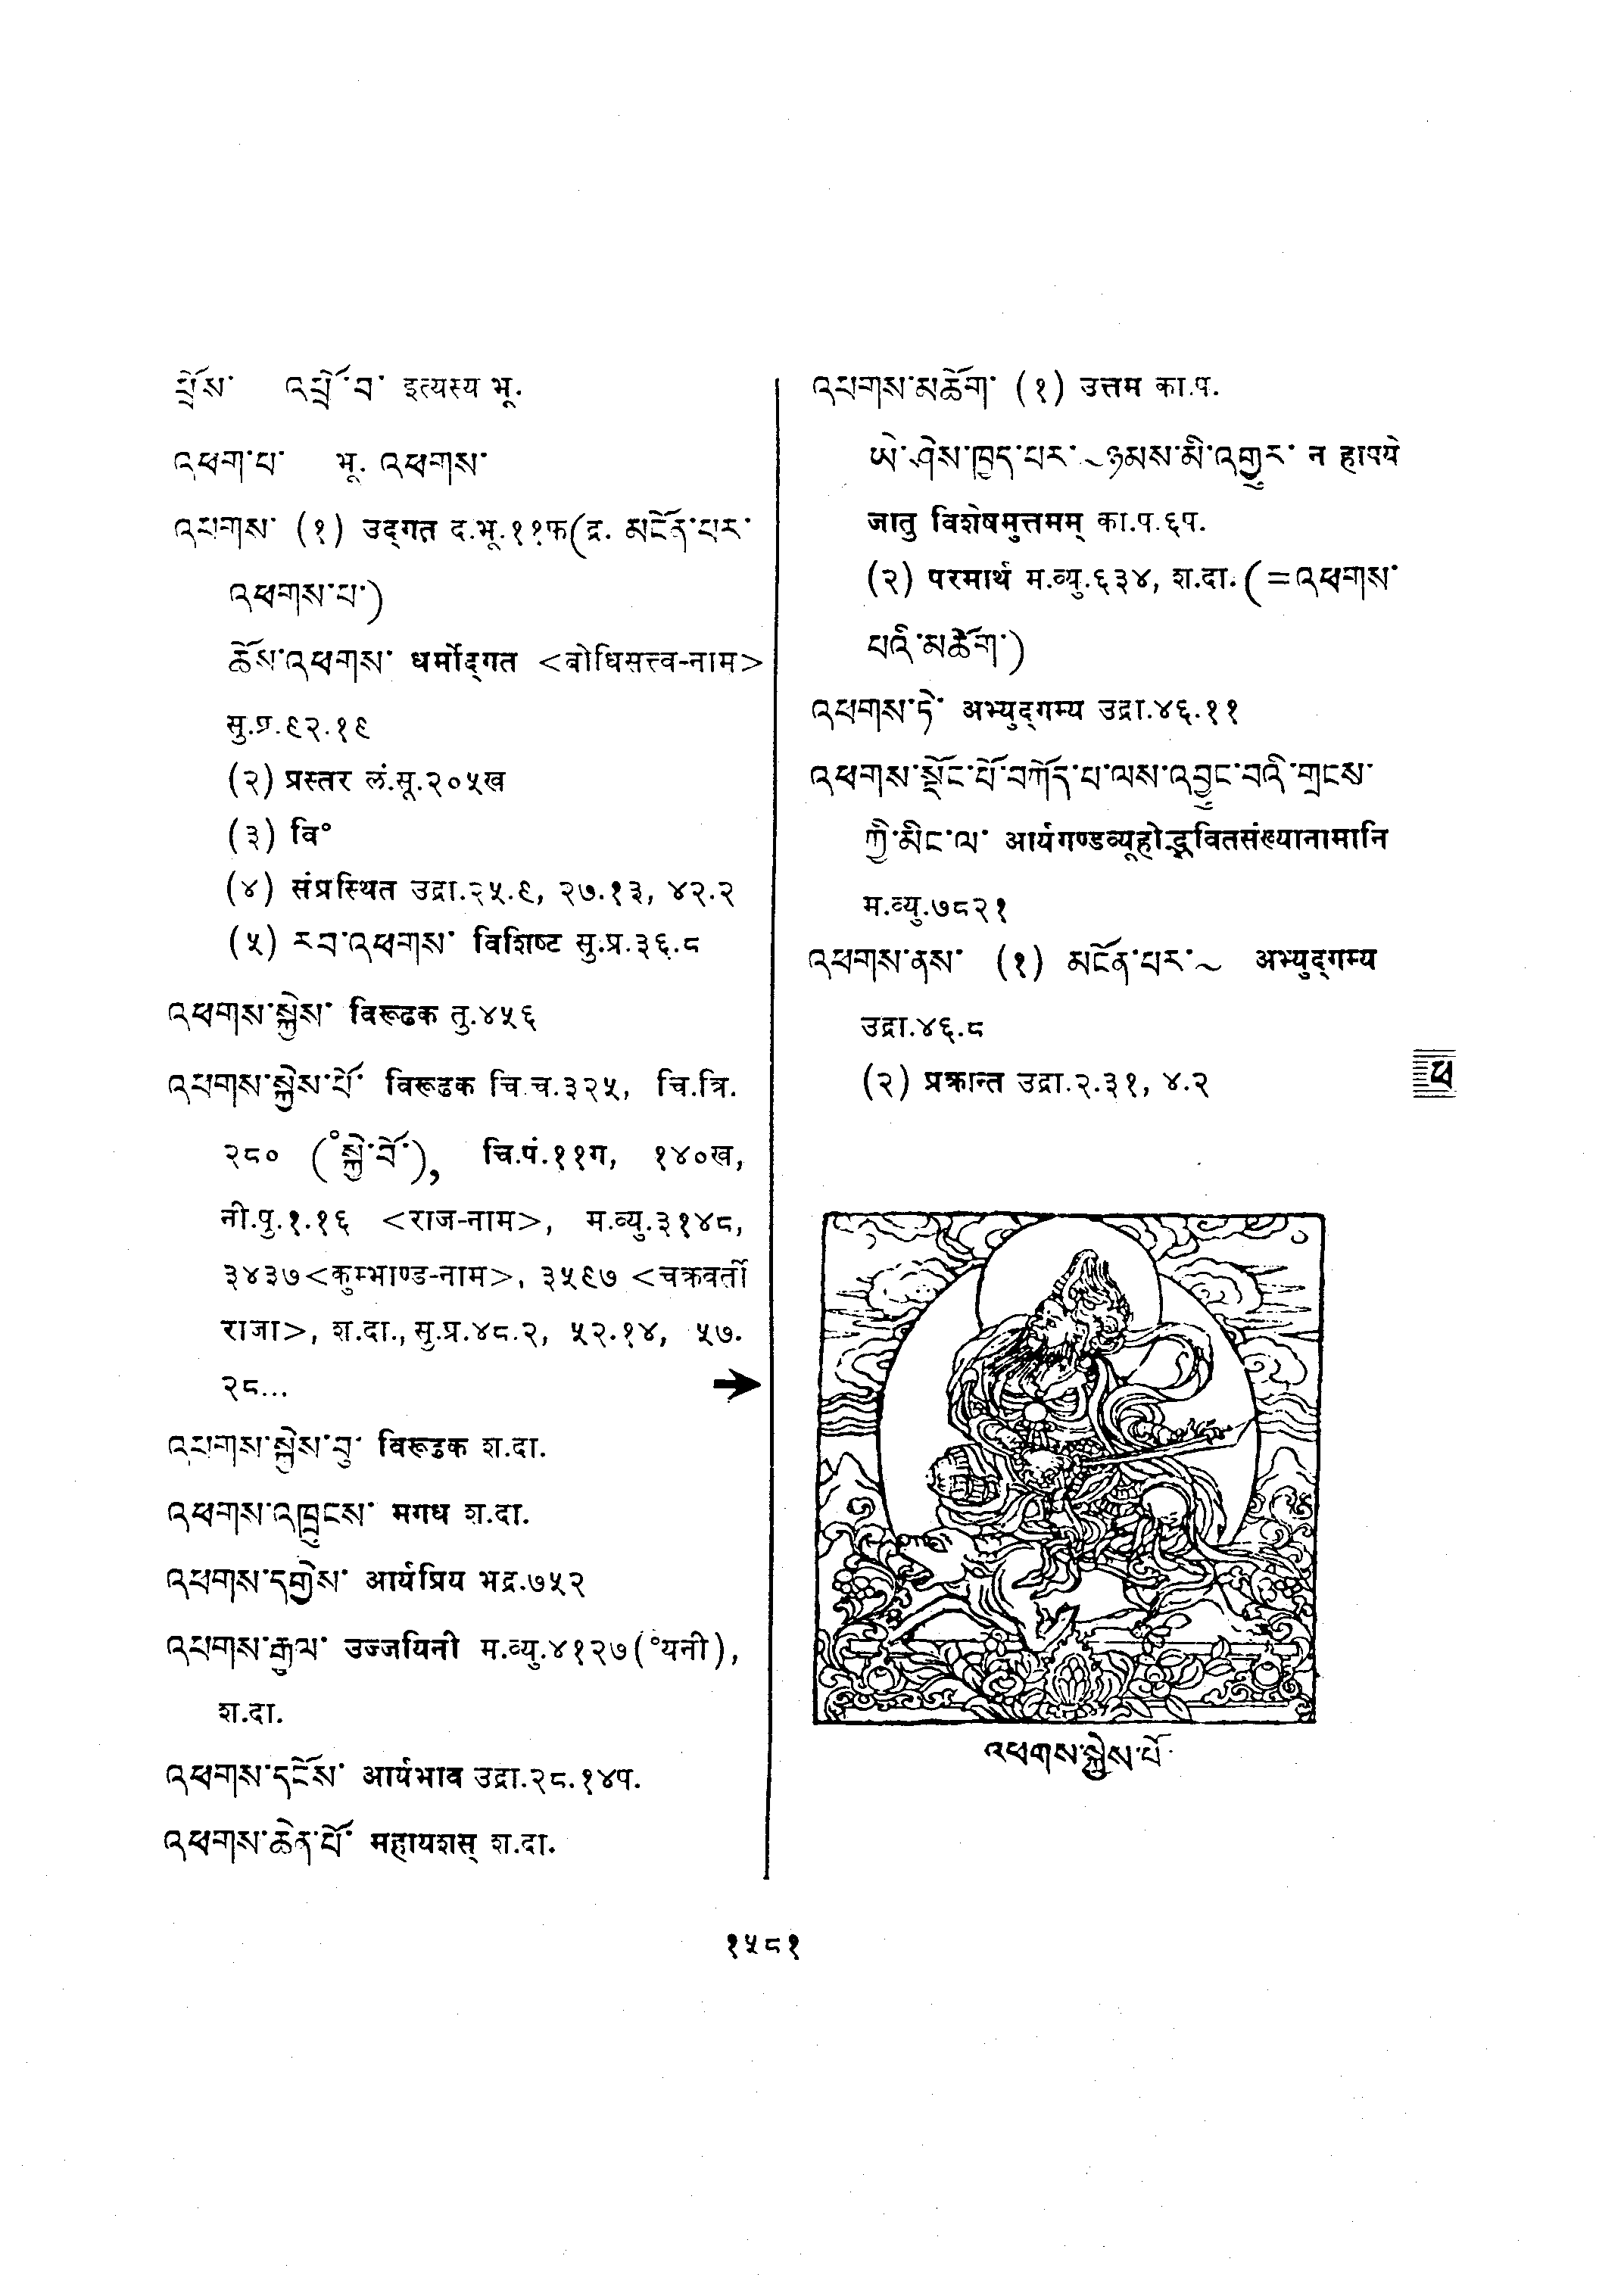 ཕྲོས་ འཕྲོ་བ་ इत्यस्य भू.
འཕག་པ་ भू. འཕགས་
འཕགས་ (१) उद्गत द.भू.११क(द्र. མངོན་པར་
འཕགས་པ་)
ཆོས་འཕགས་ धर्मोद्गत <बोधिसत्त्व-नाम>
सु.प्र.९२.१९
(२) प्रस्तर लं.सू.२०५ख
(३) वि°
(४) संप्रस्थित उद्रा.२५.९, २७.१३, ४२.२
(५) རབ་འཕགས་ विशिष्ट सु.प्र.३६.८
འཕགས་སྐྱེས་ विरूढक तु.४५६
འཕགས་སྐྱེས་པོ་ विरूढक चि.च.३२५, चि.त्रि.
२८० (°སྐྱེ་བོ་), चि.पं.११ग, १४०ख,
नी.पु.१.१६ <राज-नाम>, म.व्यु.३१४८,
३४३७<कुम्भाण्ड-नाम>, ३५९७ <चक्रवर्ती
राजा>, श.दा., सु.प्र.४८.२, ५२.१४, ५७.
२८... →
འཕགས་སྐྱེས་བུ་ विरूढक श.दा.
འཕགས་འཁྲུངས་ मगध श.दा.
འཕགས་དགྱེས་ आर्यप्रिय भद्र.७५२
འཕགས་རྒྱལ་ उज्जयिनी म.व्यु.४१२७(°यनी),
श.दा.
འཕགས་དངོས་ आर्यभाव उद्रा.२८.१४प.
འཕགས་ཆེན་པོ་ महायशस् श.दा.
འཕགས་མཆོག་ (१) उत्तम का.प.
ཡེ་ཤེས་ཁྱད་པར་~ཉམས་མི་འགྱུར་ न हापये
जातु विशेषमुत्तमम् का.प.६प.
(२) परमार्थ म.व्यु.६३४, श.दा. (=འཕགས་
པའི་མཆོག་)
འཕགས་ཏེ་ अभ्युद्गम्य उद्रा.४६.११
འཕགས་སྡོང་པོ་བཀོད་པ་ལས་འབྱུང་བའི་གྲངས་
ཀྱི་མིང་ལ་ आर्यगण्डव्यूहोद्भवितसंख्यानामानि
म.व्यु.७८२१
འཕགས་ནས་ (१) མངོན་པར་~ अभ्युद्गम्य
उद्रा.४६.८
(२) प्रक्रान्त उद्रा.२.३१, ४.२
ཕ
འཕགས་སྐྱེས་པོ་
१५८१